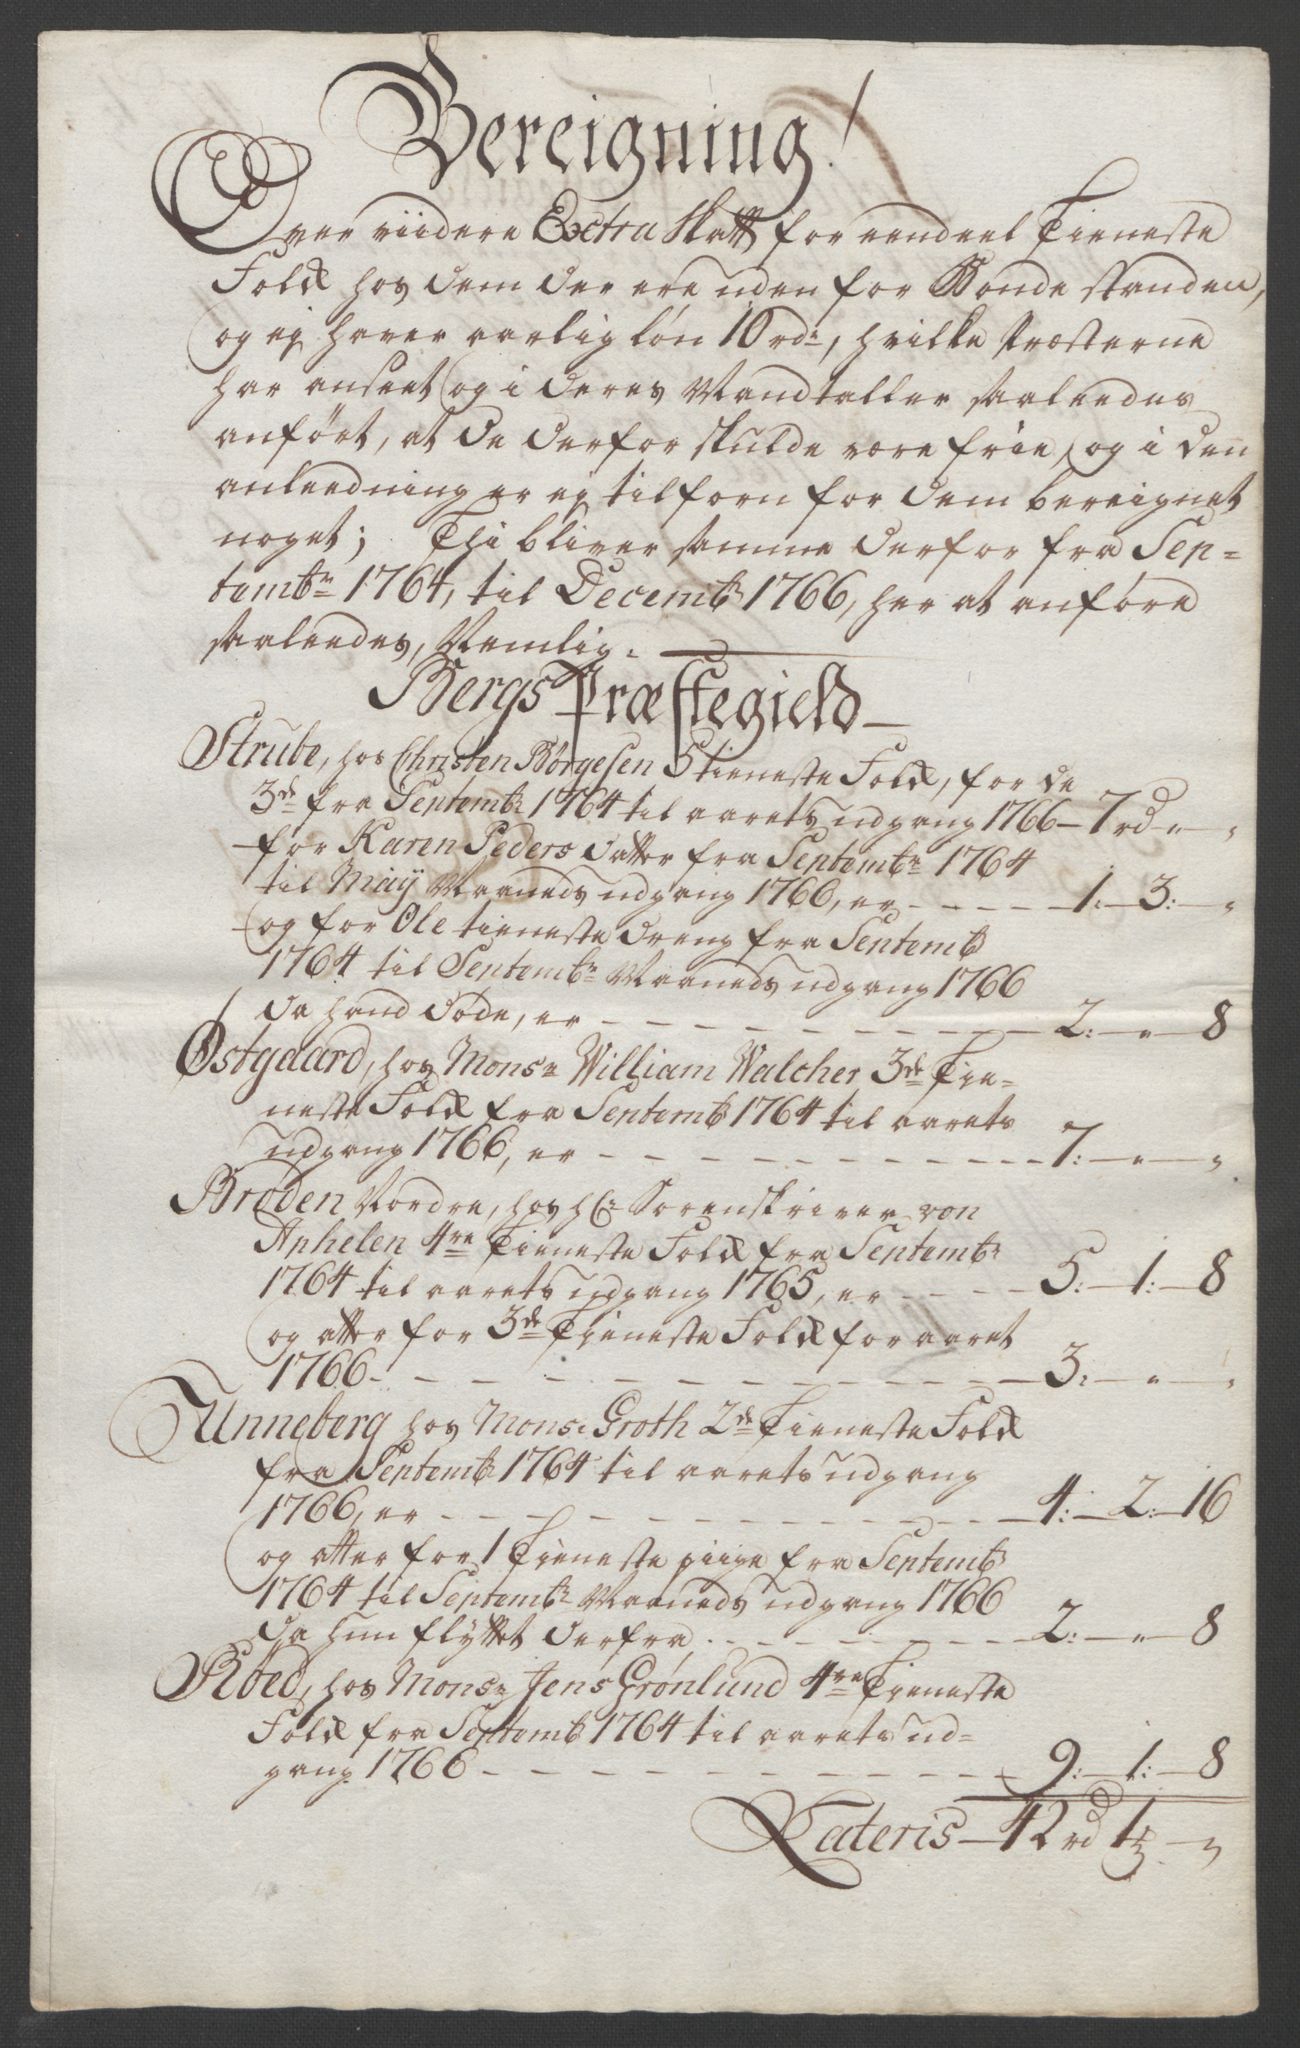 Bereigning!
Over viidere Extra Skatt for eendeel Tieneste
Folk hos dem der ere uden for Bonde standen,
og ej haver aarlig løn 10 rdr, hvilke Præsterne
har anseet og i deres Mandtaller saaleedes
anført, at de derfor skulde være frie, og i den
anleedning er ej tilforn for dem bereignet
noget; Thi bliver samme derfor fra Sep-
tembr 1764, til Decembr 1766, her at anføre
saaleedes, Nemlig.
Bergs Præstegield
Strube, hos Christen Börgesen 5 tieneste Folk, for de
3de fra Septembr 1764 til aarets udgang 1766 — 7 rd " "
for Karen Peders datter fra Septembr 1764
til Maÿ Maaneds udgang 1766, er — 1: 3: "
og for Ole tieneste dreng fra Septembr
1764 til Septembr Maaneds udgang 1766
da hand døde, er — 2: " 8
Østgaard, hos Monsr William Walcher 3de Tie-
neste Folk fra Septembr 1764 til aarets
udgang 1766, er — 7: " "
Brøden Nordre, hos hr Sorenskriver von
Aphelen 4re Tieneste Folk fra Septembr
1764 til aarets udgang 1765, er — 5: 1: 8
og atter for 3de Tieneste Folk for aaret
1766 — 3: " "
Unneberg hos Monsr Groth 2de Tieneste Folk
fra Septembr 1764 til aarets udgang
1766, er — 4: 2: 16
og atter for 1 Tieneste piige fra Septembr
1764 til Septembr Maaneds udgang 1766
da hun flyttet derfra — 2: " 8
Röed, hos Monsr Jens Grönlund 4re Tieneste
Folk fra Septembr 1764 til aarets ud-
gang 1766 — 9: 1: 8
Lateris — 42 rd 1 "